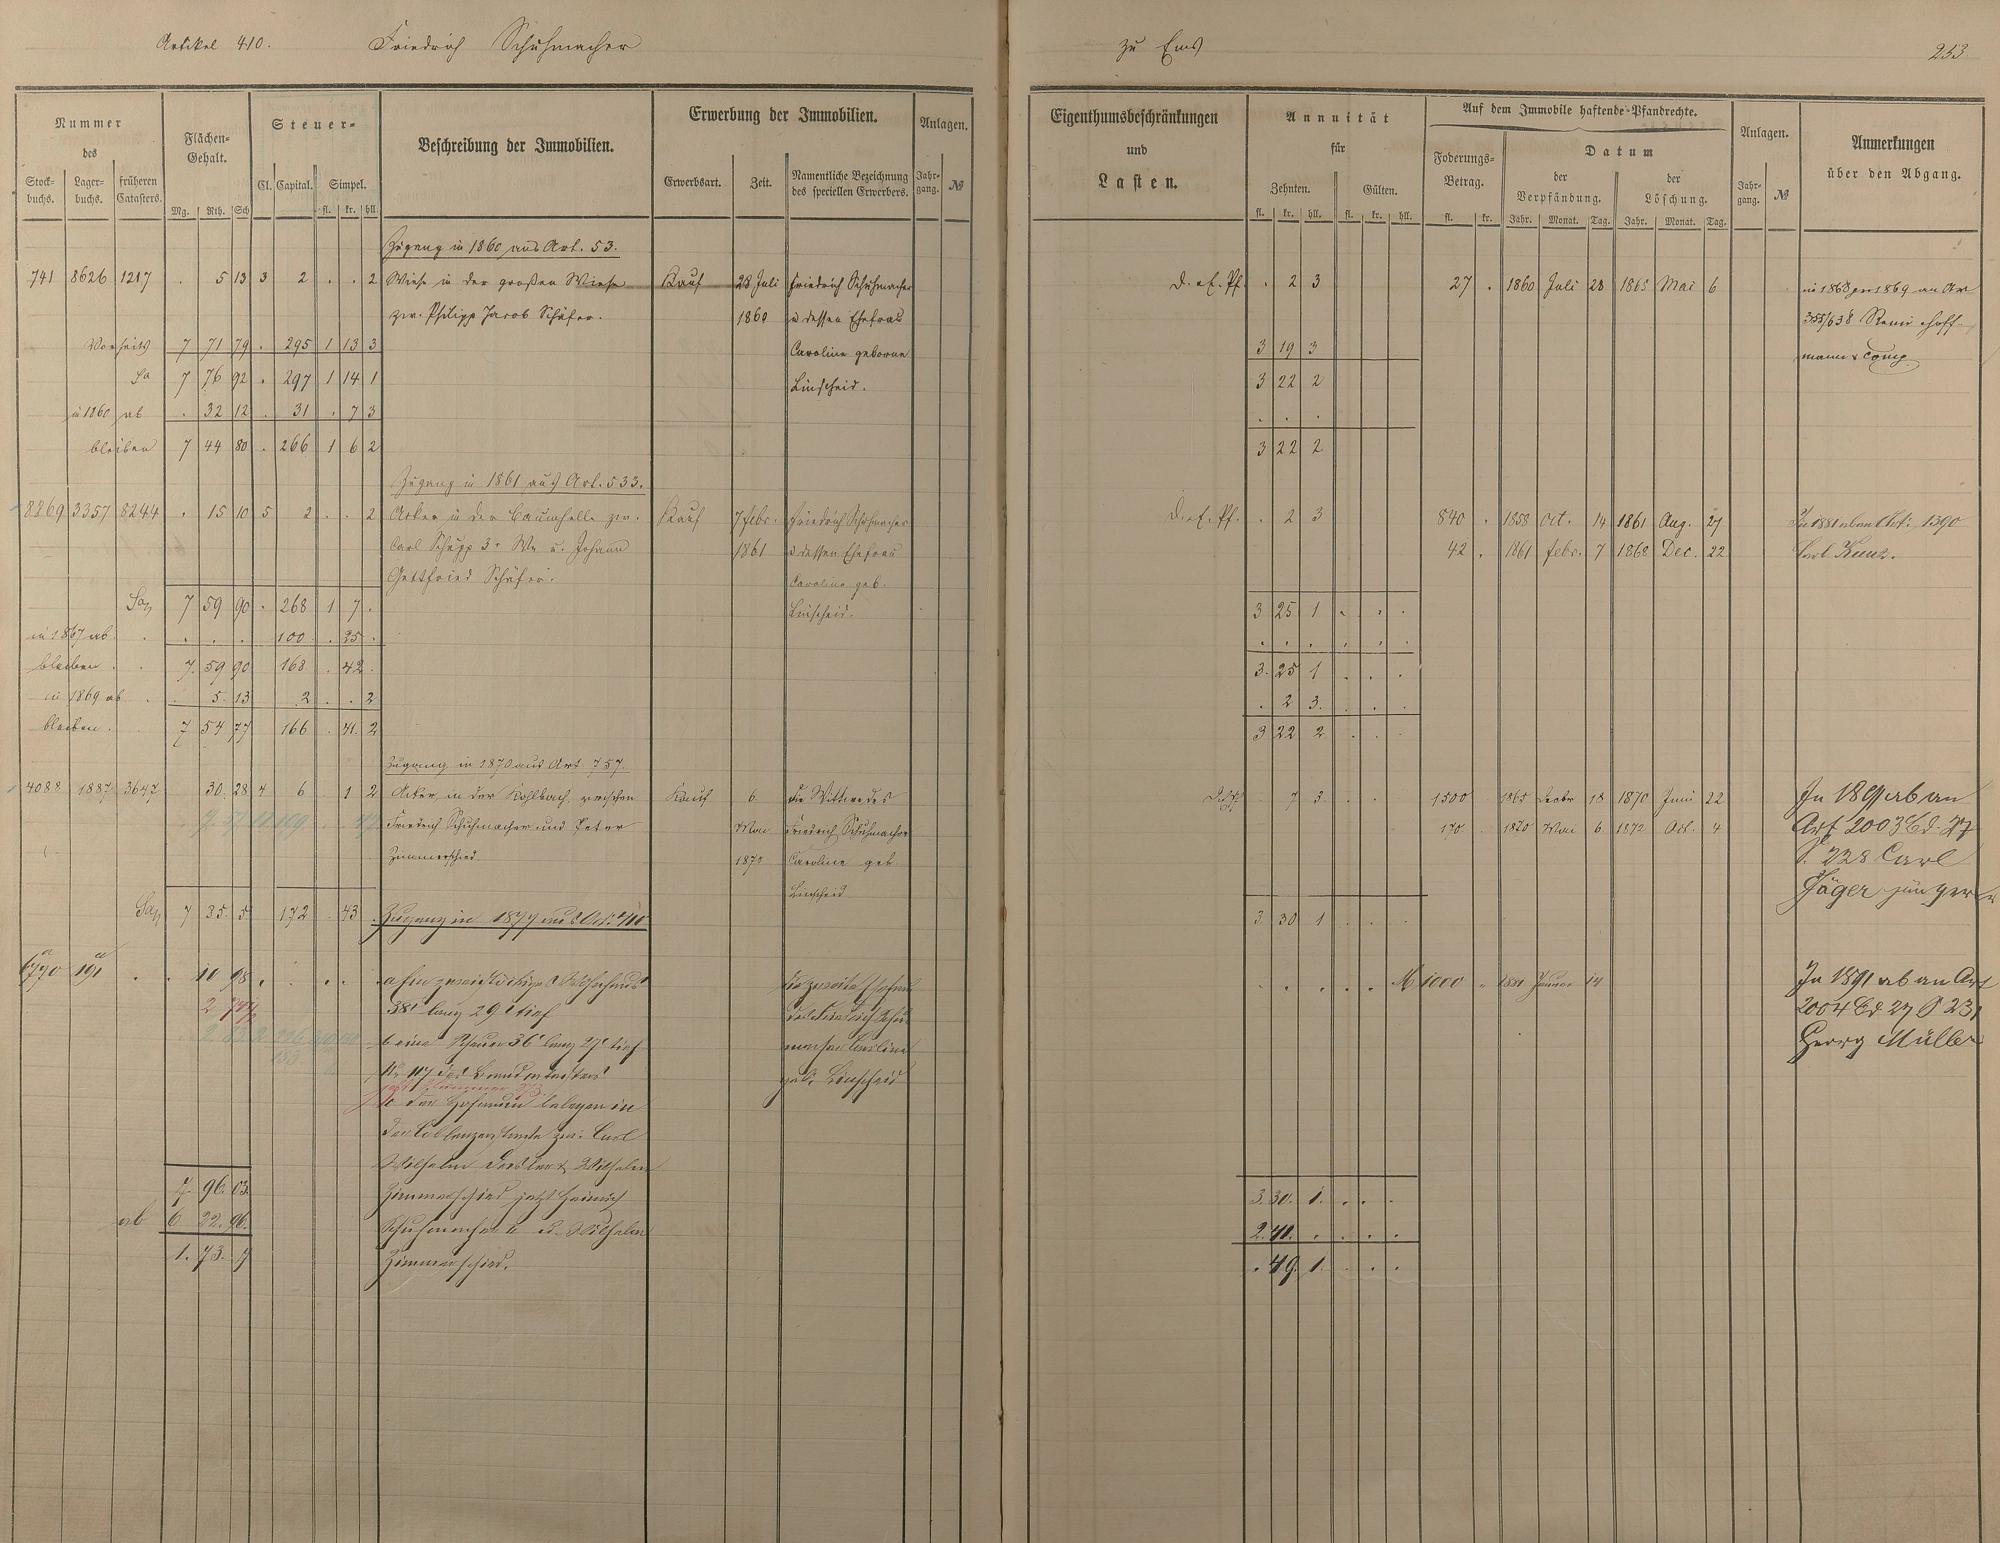 Artikel 410. Friedrich Schuhmacher
zu Ems 253.
Nummer des
Stock-buchs. Lager-buchs. früheren Catasters.
Flächen-Gehalt.
Mg. Rth. Sch
Steuer-
Cl. Capital. Simpel.
fl. kr. hll.
Beschreibung der Immobilien.
Erwerbung der Immobilien.
Erwerbsart. Zeit. Namentliche Bezeichnung des speciellen Erwerbers.
Anlagen.
Jahr-gang. №
Eigenthumsbeschränkungen
und
Lasten.
Annuität
für
Zehnten. Gülten.
fl. kr. hll. fl. kr. hll.
Auf dem Immobile haftende Pfandrechte.
Foderungs-Betrag.
fl. kr.
Datum
der Verpfändung. der Löschung.
Jahr. Monat. Tag. Jahr. Monat. Tag.
Anlagen.
Jahr-gang. №
Anmerkungen
über den Abgang.
Zugang in 1860 aus Art. 53.
741 8626 1217 . 5 13 3 2 . . 2 Wiese in der großen Wiese Kauf 28 Juli Friedrich Schuhmacher
zw. Philipp Jacob Schäfer. 1860 u dessen Ehefrau
Vorseits 7 71 79 . 295 1 13 3 Caroline geborne
Sa 7 76 92 . 297 1 14 1 Linscheid.
in 1860 ab . 32 12 . 31 . 7 3
bleiben 7 44 80 . 266 1 6 2
Zugang in 1861 aus Art. 533.
8869 3357 8244 . 15 10 5 2 . . 2 Acker in der Baumhelle zw. Kauf 7 Febr. Friedrich Schuhmacher
Carl Schupp 3r We u. Johann 1861 u dessen Ehefrau
Gottfried Schäfer. Caroline geb.
Linscheid.
Sa 7 59 90 . 268 1 7 .
in 1867 ab . . . . 100 . 25 .
bleiben . . 7. 59 90 168 . 42 .
in 1869 ab . . 5. 13 2 . . 2
bleiben . . 7 54 77 166 . 41. 2
Zugang in 1870 aus Art. 757.
4088 1887 3647 30. 28 4 6 . 1 2 Acker in der Kohlbach, zwischen Kauf 6. die Wittwe des
Friedrich Schuhmacher und Peter Mai Friedrich Schuhmacher
Zimmerschied. 1870 Caroline geb.
Linscheid
7 35. 5 172 . 43 . Zugang in 1877 aus Art.
6770 a 191 a . . 10 98 . . . .
38' lang 29' tief
b eine Scheuer 36' lang 27' tief
jetzt Nummer
c der Hofraum belegen in
der Coblenzerstraße zw. Carl
Zimmerschied jetzt Heinrich
Zimmerschied.
des Friedrich Schuh
macher Caroline
geb. Linscheid
7. 96. 03.
ab 6 22. 96.
1. 73. 7
D. u. E. Pf. . 2 3 27 . 1860 Juli 28 1865 Mai 6 in 1868 pro 1869 an Art
355/638 Remi Hoff-
3 19 3 mann & Comp.
3 22 2
. . .
3 22 2
D. u. E. Pf. . 2 3 840 . 1858 Oct. 14 1861 Aug. 27 In 1881 ab an Art. 1390
42 . 1861 Febr. 7 1868 Dec. 22 Carl Kunz.
3 25 1 . . .
. . . . . .
3. 25 1 . . .
. 2 3. . . .
3 22 2 . . .
. 7 3 . . 1500 1865 Decbr 18 1870 Juni 22 In 1891 ab an
170 1870 Mai 6 1872 Oct. 4 Art 2003 Bd. 27
S. 228 Carl
Jäger jünger
3. 30 1 . . .
M 1000 . 1881 Januar 14 In 1891 ab an Art
2004 Bd 27 S 231
Georg Müller
3. 30. 1. . . .
2. 41. . . . .
. 49. 1. . . .